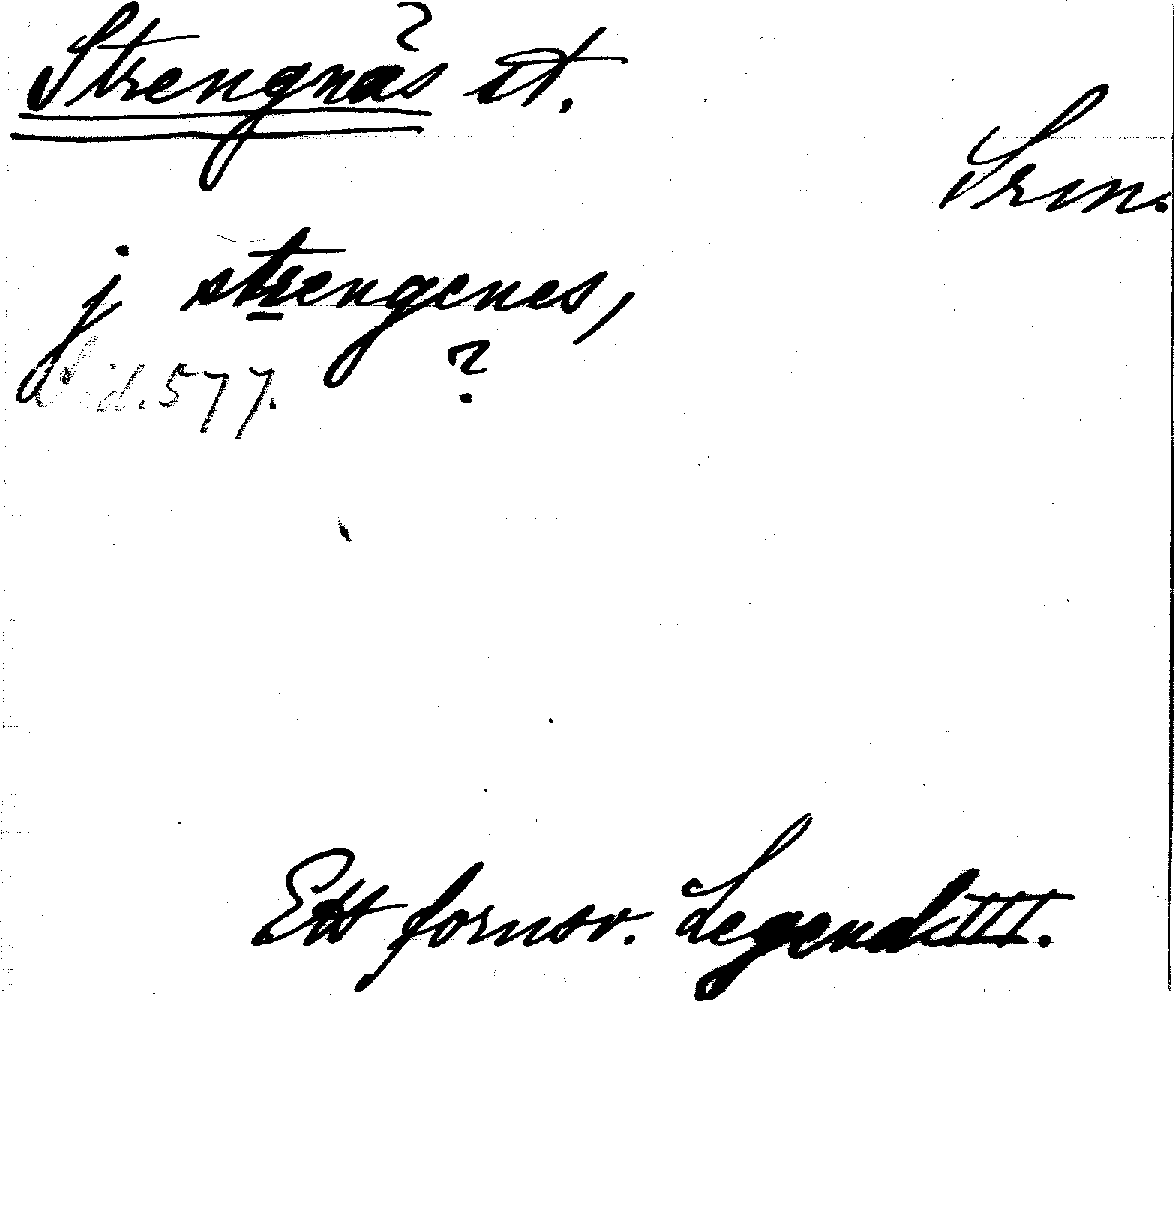 Strengnäs st.
Srm.
j strengenes,
Sid. 577. ?
Ett fornsv. Legend III.